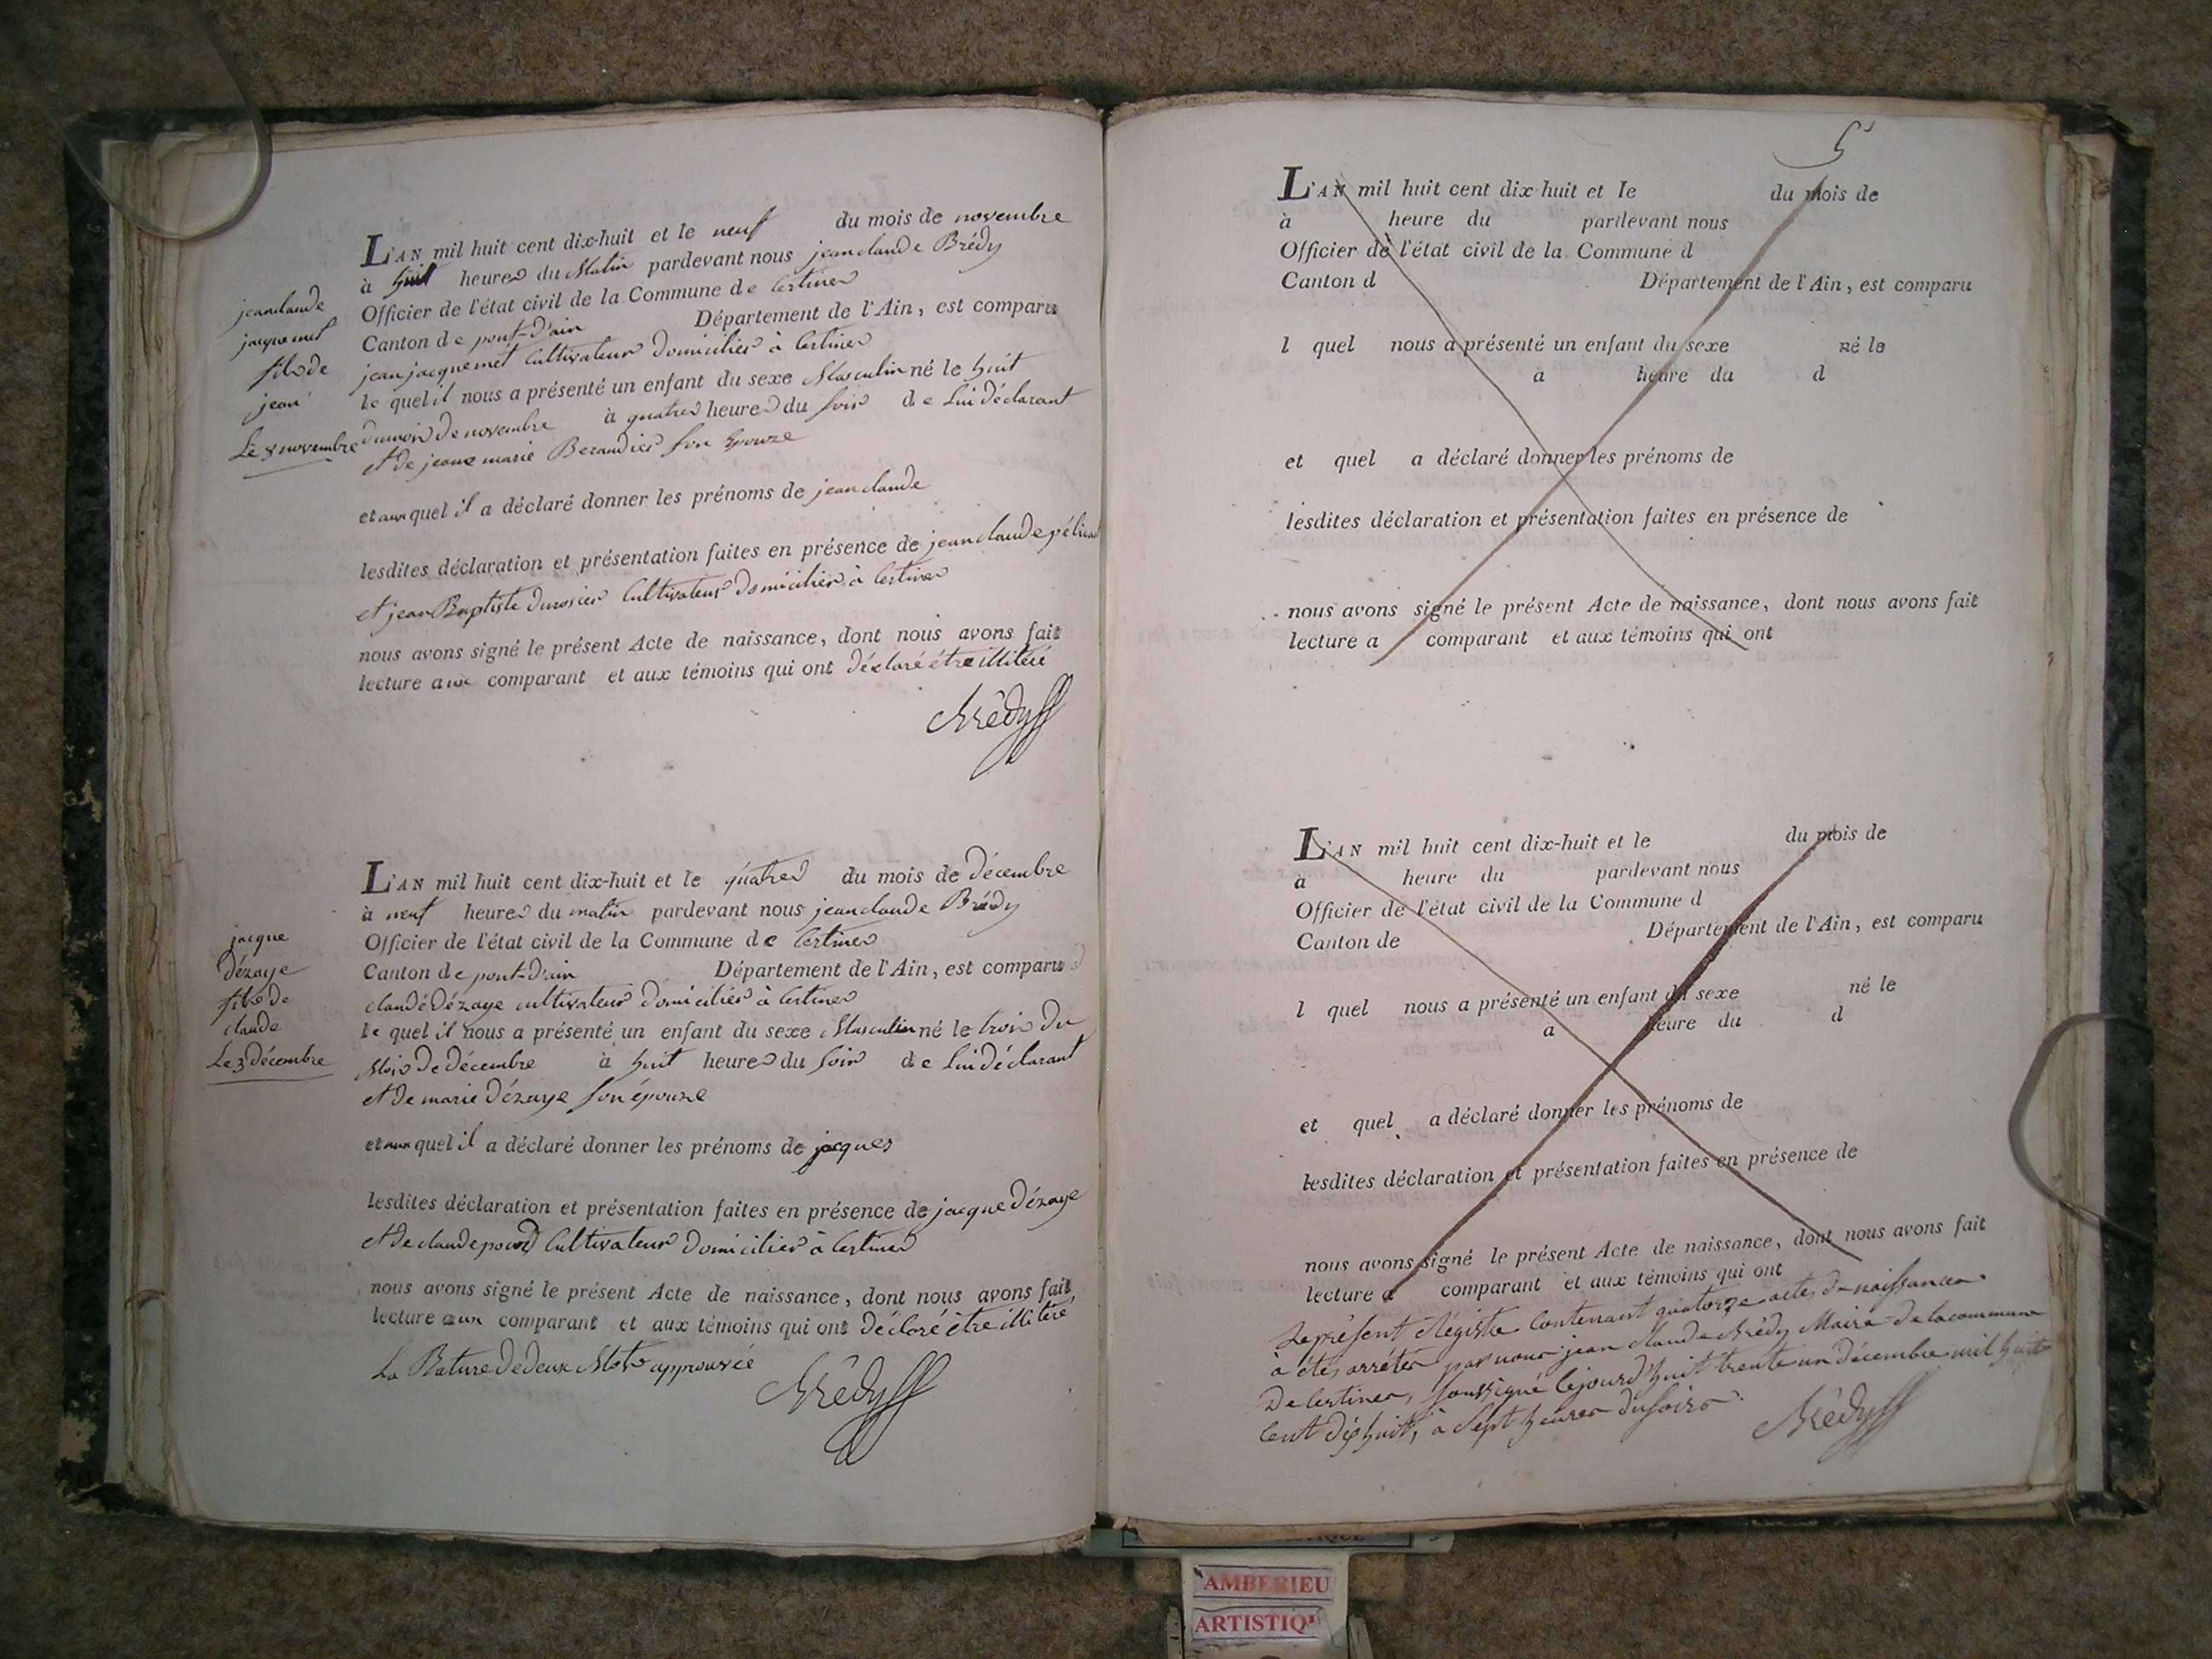 L'AN mil huit cent dix-huit et le neuf du mois de novembre
à huit heures du Matin pardevant nous jean claude Brédy
Officier de l'état civil de la Commune de Certines
Canton de pont-d'ain Département de l'Ain, est comparu
jean jacquemet Cultivateur Domicilier à Certines
le quel il nous a présenté un enfant du sexe Masculin né le huit
du mois de novembre à quatres heures du soir de Lui déclarant
et de jeane marie Berandier son Epouze
et aux quel il a déclaré donner les prénoms de jean claude
lesdites déclaration et présentation faites en présence de jean claude
et jean Baptiste Cultivateur Domicilier à Certines
nous avons signé le présent Acte de naissance, dont nous avons fait
lecture aux comparant et aux témoins qui ont déclaré être illitéré
Brédy
jean claude
jacquemet
fils de
jean
Le 8 novembre
L'AN mil huit cent dix-huit et le quatres du mois de Décembre
à neuf heures du matin pardevant nous jean claude Brédy
Officier de l'état civil de la Commune de Certines
Canton de pont-d'ain Département de l'Ain, est comparu
claude Dézaye cultivateur Domicilier à Certines
le quel il nous a présenté un enfant du sexe Masculin né le trois Du
Mois De décembre à huit heures du soir de Lui Déclarant
et De marie Dézaye son épouze
et aux quel il a déclaré donner les prénoms de jacques
lesdites déclaration et présentation faites en présence de jacque Dézaye
et De claude Cultivateur Domicilier à Certines
nous avons signé le présent Acte de naissance, dont nous avons fait
lecture aux comparant et aux témoins qui ont Déclaré être illitéré
La Rature De deux Mots approuvée
Brédy
jacque
Dézaye
fils de
claude
Le 3 décembre
5
L'AN mil huit cent dix-huit et le du mois de
à heure du pardevant nous
Officier de l'état civil de la Commune d
Canton d Département de l'Ain, est comparu
l quel nous a présenté un enfant du sexe né le
à heure du d
et quel a déclaré donner les prénoms de
lesdites déclaration et présentation faites en présence de
nous avons signé le présent Acte de naissance, dont nous avons fait
lecture a comparant et aux témoins qui ont
L'AN mil huit cent dix-huit et le du mois de
à heure du pardevant nous
Officier de l'état civil de la Commune d
Canton de Département de l'Ain, est comparu
l quel nous a présenté un enfant du sexe né le
a heure du d
et quel a déclaré donner les prénoms de
lesdites déclaration et présentation faites en présence de
nous avons signé le présent Acte de naissance, dont nous avons fait
lecture a comparant et aux témoins qui ont
Le présent Régistre Contenant quatorze actes de naissances
a étés arrétés par nous jean claude Brédy Maire de la commune
De Certines, soussigné Cejourd'huit trente un décembre mil huit
Cent Dix huit, à Sept heures du soir
Brédy
AMBERIEU
ARTISTIQ